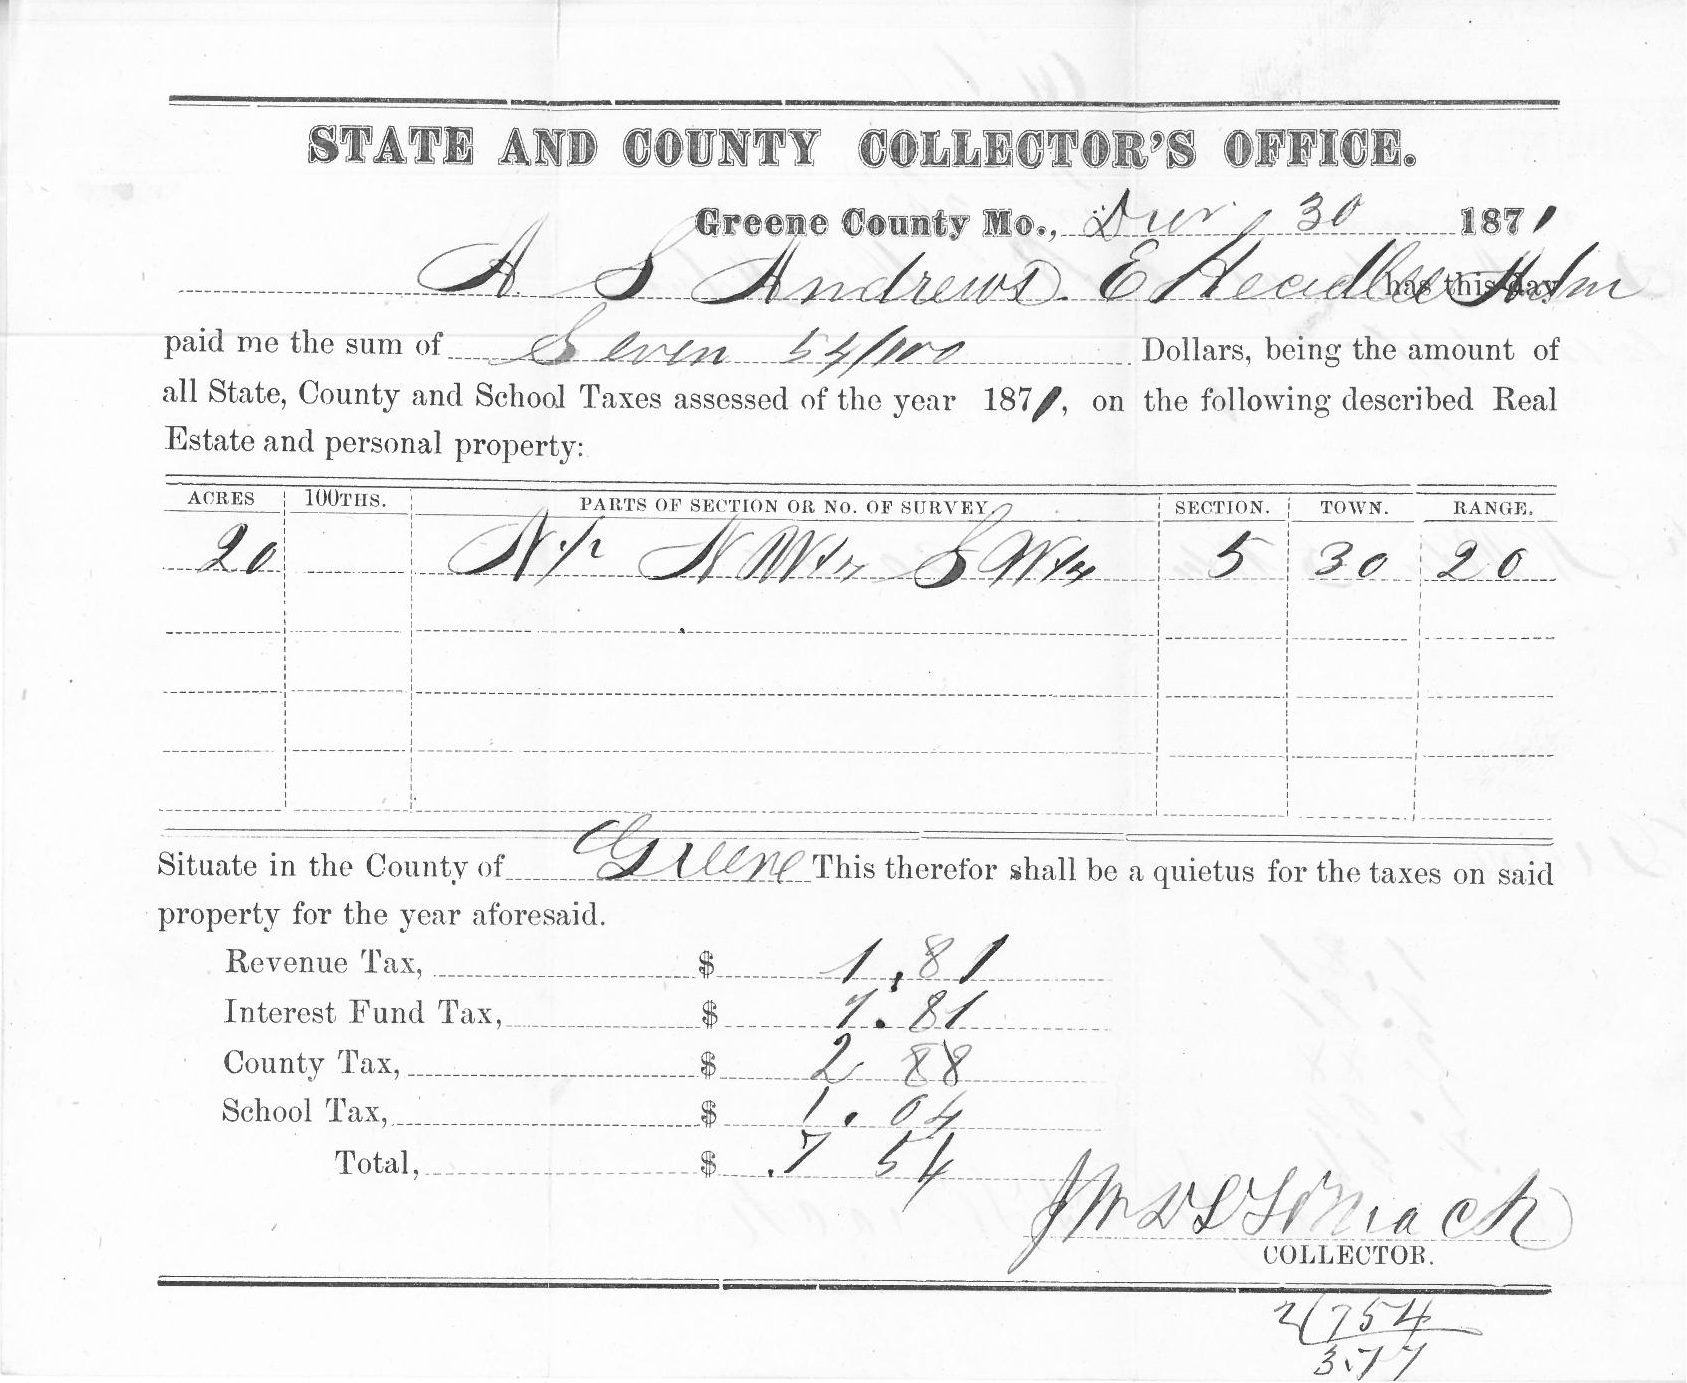 STATE AND COUNTY COLLECTOR'S OFFICE.
Greene County Mo., Dec 30 1871
A S Andrews. E Headlee Adm has this day
paid me the sum of Seven 54/100 Dollars, being the amount of
all State, County and School Taxes assessed of the year 1871, on the following described Real
Estate and personal property:
ACRES 100THS. PARTS OF SECTION OR No. OF SURVEY SECTION. TOWN. RANGE.
20 N ½ NW¼ SW¼ 5 30 20
Situate in the County of Greene This therefor shall be a quietus for the taxes on said
property for the year aforesaid.
Revenue Tax, $ 1.81
Interest Fund Tax, $ 1.81
County Tax, $ 2 88
School Tax, $ 1.04
Total, $ 7 54
COLLECTOR.
2(754
3.77